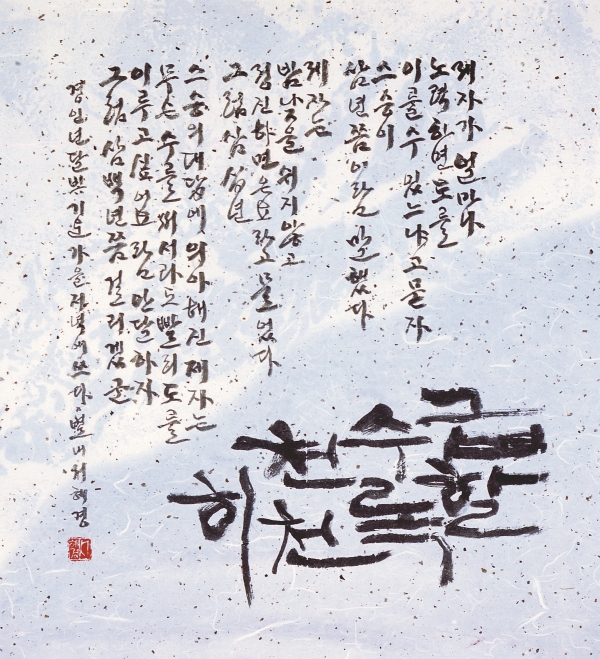 제자가 얼마나
노력하면 도를
이룰 수 있느냐고 묻자
스승이
삼년쯤이라 말했다
제자는
밤낮을 쉬지 않고
정진하면은요 라고 물었다
그럼 삼십년
스승의 대답에 의아해진 제자는
무슨 수를 써서라도 빨리 도를
이루고 싶어요 라며 안달하자
그럼 삼백년쯤 걸리겠군
급할
수록
천천
히
경인년 달빛 기운 가을 저녁에 쓰다. 별내 서혜경